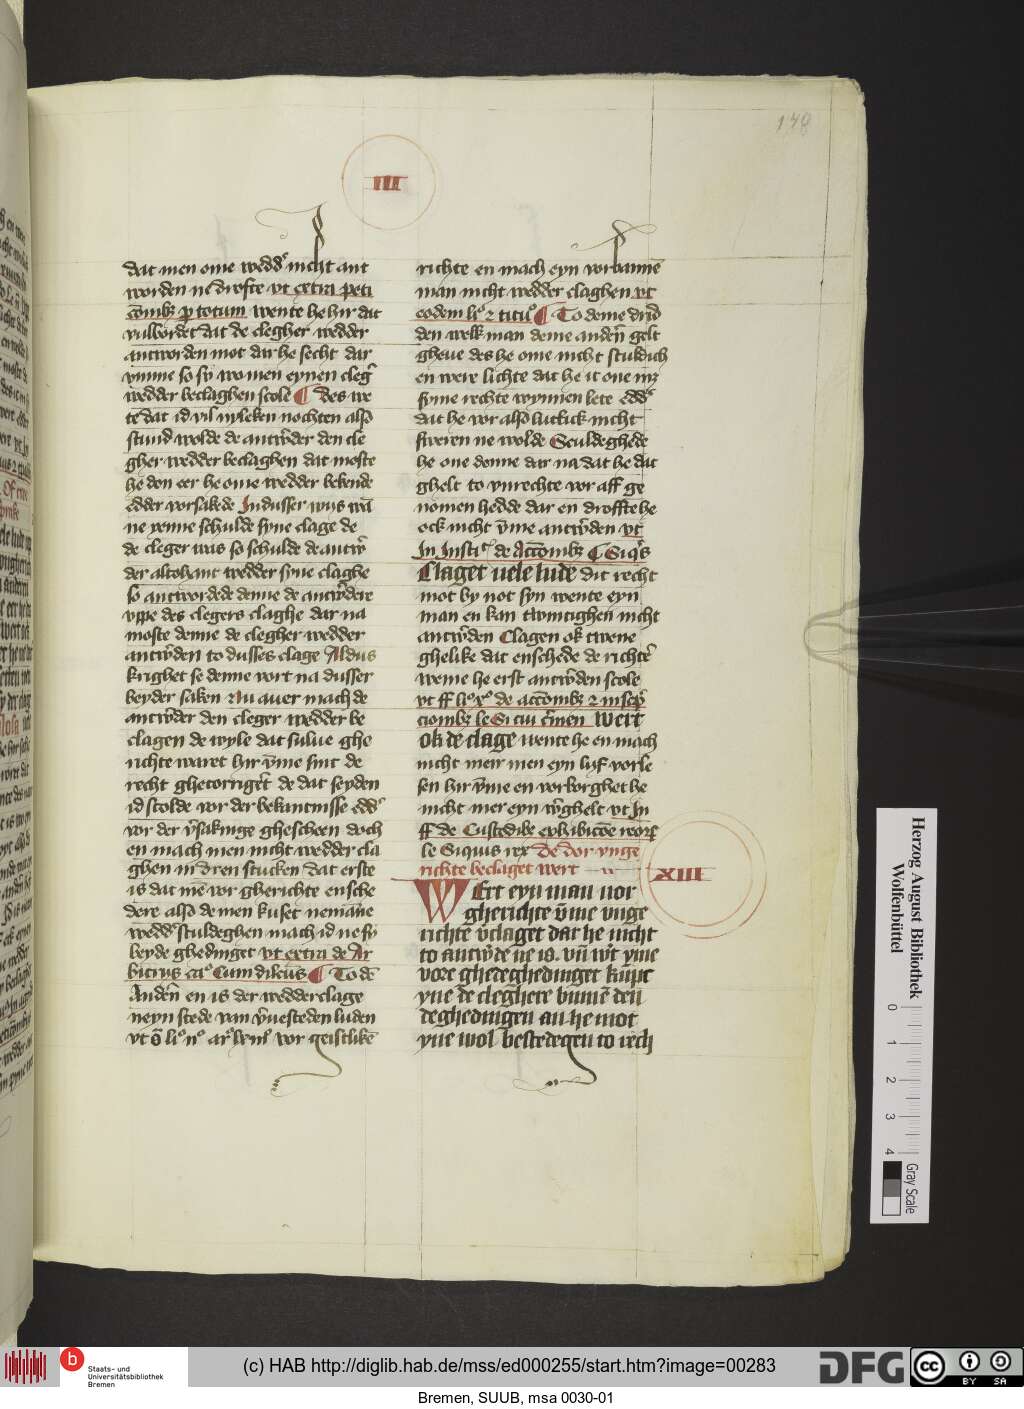 178
III
dat men ome wedd' nicht ant
worden ne drofte vt extra peti
cōmbz p totum wente he hir dat
vulbordet dat de clegher wedder
antworden mot dar he secht dar
vmme so sy wo men eynen cleg'
wedder beclaghen scole ¶ des we
te dat id vil nyleken nochten also
stund wolde de antw'der den cle
gher wedder beclaghen dat moste
he don eer he ome wedder bekende
edder vorsakede In dusser wys wā
ne xenne schulde syne clage de
de cleger was so schulde de antw'
der altohant wedder syne claghe
so antwordede denne de antw'dere
vppe des clegers claghe dar na
moste denne de clegher wedder
antw'den to dusses clage Aldus
krighet se denne vort na dusser
beyder saken Nu auer mach de
antw'der den cleger wedder be
clagen de wyle dat sulue ghe
richte waret hir v̄me sint de
recht ghecorriger̄t de dat seyden
id scolde vor der bekantnisse edd'
vor der v'sakinge ghescheen doch
en mach men nicht wedder cla
ghen in dren stucken dat erste
is dat mē vor gherichte ensche
dere also de men kuset nemāne
wedd' sculdeghen mach id ne sy
beyde ghedinget vt extra de Ar
bitrys ca° Cum dilcus ¶ To dē
Andern en is der wedderclage
neyn stede van v'uesteden luden
vor geistlikē
richte en mach eyn vorbannē
man nicht wedder claghen vt
eodem li° z titu° ¶ To deme drid
den welk man deme andern gelt
gheue des he ome nicht sculdich
en were lichte dat he it one mz
syme rechte wynnen lete edd'
dat he vor also luttick nicht
sweren ne wolde Sculdeghede
he one denne dar na dat he dat
ghelt to vnrechte vor aff ge
nomen hedde dar en drofftehe
ock nicht v̄me antw'den vt
In Insti' de Acc̄ombz ¶ Siq's
Claget uele lude dit recht
mot by not syn wente eyn
man en kan twintighen nicht
antw'den Clagen ok twene
ghelike dat enschede de richte'
weme he erst antw'den scole
vt ff li° x° de acc̄ombz z inscp'
ciombz le Si cui c'men Wert
ok de clage wente he en mach
nicht meir men eyn lyf vorle
sen hir v̄me en vorborghet he
nicht mer eyn w'ghelt vt In
ff de Custodibe exhibic̄oe reorz
le Siquis rex De dor vnge
richte beclaget wert
XIII
WErt eyn man uor
gherichte v̄me vnge
richte v'claget dat he nicht
to antw'de ne is. vn̄ w't yme
vore ghedeghedinget kūpt
yne de cleghere binnē den
deghedingen an he mot
yne wol bestedegen to rech
Herzog August Bibliothek
Wolfenbüttel
0 1 2 3 4
Gray Scale
b Staats- und
Universitätsbibliothek
Bremen
(c) HAB http://diglib.hab.de/mss/ed000255/start.htm?image=00283
DFG
cc BY SA
Bremen, SUUB, msa 0030-01